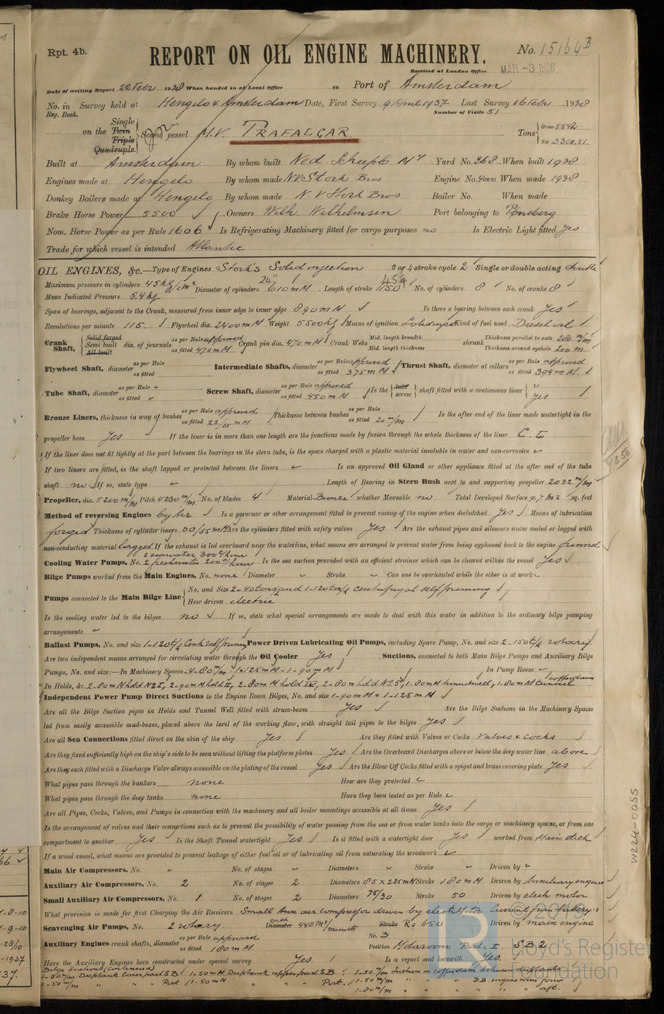 Rpt. 4b.
REPORT ON OIL ENGINE MACHINERY.
No. 15164 B
Received at London Office MAR -3 1938
Date of writing Report 22 Febr 1938 When handed in at Local Office 19 Port of Amsterdam
No. in Survey held at Hengelo & Amsterdam Date, First Survey 9 April 1937 Last Survey 16 Febr 1938
Reg. Book. Number of Visits 51
Single
on the Twin Screw vessel M.V. TRAFALGAR Tons Gross 5542
Triple
Quadruple Net 3300.51
Built at Amsterdam By whom built Ned. Scheepsb. My Yard No. 268 When built 1938
Engines made at Hengelo By whom made NV Stork Bros Engine No. When made 1938
Donkey Boilers made at Hengelo By whom made N.V. Stork Bros Boiler No. When made
Brake Horse Power 5500 Owners Wilh. Wilhelmsen Port belonging to Tønsberg
Nom. Horse Power as per Rule 1606 Is Refrigerating Machinery fitted for cargo purposes no Is Electric Light fitted yes
Trade for which vessel is intended Atlantic
OIL ENGINES, &c.—Type of Engines Stork's Solid injection 2 or 4 stroke cycle 2 Single or double acting double
Maximum pressure in cylinders 45 kg/cm² Diameter of cylinders 610 m/m Length of stroke 1150 No. of cylinders 8 No. of cranks 8
Mean Indicated Pressure 5.4 kg
Span of bearings, adjacent to the Crank, measured from inner edge to inner edge 890 m/m Is there a bearing between each crank Yes
Revolutions per minute 115 Flywheel dia. 2400 m/m Weight 5500 kg Means of ignition Solid inject. Kind of fuel used Diesel oil
Crank Shaft, Solid forged Semi built All built dia. of journals as per Rule approved as fitted 470 m/m Crank pin dia. 470 m/m Crank Webs Mid. length breadth Mid. length thickness shrunk Thickness parallel to axis 280 m/m Thickness around eyehole 200 m/m
Flywheel Shaft, diameter as per Rule as fitted Intermediate Shafts, diameter as per Rule approved as fitted 375 m/m Thrust Shaft, diameter at collars as per Rule approved as fitted 394 m/m
Tube Shaft, diameter as per Rule as fitted Screw Shaft, diameter as per Rule approved as fitted 450 m/m Is the tube screw shaft fitted with a continuous liner yes
Bronze Liners, thickness in way of bushes as per Rule approved as fitted 22/25 m/m Thickness between bushes as per Rule as fitted 20 m/m Is the after end of the liner made watertight in the
propeller boss Yes If the liner is in more than one length are the junctions made by fusion through the whole thickness of the liner C.L.
If the liner does not fit tightly at the part between the bearings in the stern tube, is the space charged with a plastic material insoluble in water and non-corrosive
If two liners are fitted, is the shaft lapped or protected between the liners Is an approved Oil Gland or other appliance fitted at the after end of the tube
shaft no If so, state type Length of Bearing in Stern Bush next to and supporting propeller 2032 m/m
Propeller, dia. 5200 m/m Pitch 4230 m/m No. of blades 4 Material Bronze whether Moveable no Total Developed Surface 9.7 m² sq. feet
Method of reversing Engines by air Is a governor or other arrangement fitted to prevent racing of the engine when declutched Yes Means of lubrication
forced Thickness of cylinder liners 30/55 m/m Are the cylinders fitted with safety valves Yes Are the exhaust pipes and silencers water cooled or lagged with
non-conducting material lagged If the exhaust is led overboard near the waterline, what means are arranged to prevent water from being syphoned back to the engine funnel
Cooling Water Pumps, No. 2 seawater 300 t/hour 2 freshwater 200 t/hour Is the sea suction provided with an efficient strainer which can be cleared within the vessel Yes
Bilge Pumps worked from the Main Engines, No. none Diameter Stroke Can one be overhauled while the other is at work
Pumps connected to the Main Bilge Line No. and Size centrifugal self priming
How driven electric
Is the cooling water led to the bilges no If so, state what special arrangements are made to deal with this water in addition to the ordinary bilge pumping
arrangements
Ballast Pumps, No. and size 1-120 t/h Centr. self priming Power Driven Lubricating Oil Pumps, including Spare Pump, No. and size 2-150 t/h rotary
Are two independent means arranged for circulating water through the Oil Cooler Yes Suctions, connected to both Main Bilge Pumps and Auxiliary Bilge
Pumps, No. and size:—In Machinery Spaces 4-80 m/m 1-125 m/m - 1-90 m/m In Pump Room
In Holds, &c.
Independent Power Pump Direct Suctions to the Engine Room Bilges, No. and size 1-90 m/m & 1-125 m/m
Are all the Bilge Suction pipes in Holds and Tunnel Well fitted with strum-boxes Yes Are the Bilge Suctions in the Machinery Spaces
led from easily accessible mud-boxes, placed above the level of the working floor, with straight tail pipes to the bilges Yes
Are all Sea Connections fitted direct on the skin of the ship Yes Are they fitted with Valves or Cocks Valves & cocks
Are they fixed sufficiently high on the ship's side to be seen without lifting the platform plates Yes Are the Overboard Discharges above or below the deep water line above
Are they each fitted with a Discharge Valve always accessible on the plating of the vessel Yes Are the Blow Off Cocks fitted with a spigot and brass covering plate Yes
What pipes pass through the bunkers none How are they protected
What pipes pass through the deep tanks none Have they been tested as per Rule
Are all Pipes, Cocks, Valves, and Pumps in connection with the machinery and all boiler mountings accessible at all times Yes
Is the arrangement of valves and their connections such as to prevent the possibility of water passing from the sea or from water tanks into the cargo or machinery spaces, or from one
compartment to another Yes Is the Shaft Tunnel watertight Yes Is it fitted with a watertight door Yes worked from Main deck
If a wood vessel, what means are provided to prevent leakage of either fuel oil or of lubricating oil from saturating the woodwork
Main Air Compressors, No. No. of stages Diameters Stroke Driven by
Auxiliary Air Compressors, No. 2 No. of stages 2 Diameters 85 x 225 m/m Stroke 180 m/m Driven by Auxiliary engines
Small Auxiliary Air Compressors, No. 1 No. of stages 2 Diameters 75/30 Stroke 50 Driven by electr. motor
What provision is made for first Charging the Air Receivers Small Aux. air compressor driven by electr. Motor current from battery
Scavenging Air Pumps, No. 2 rotary Diameter 440 m³/minute Stroke Rs 650 Driven by main engine
Auxiliary Engines crank shafts, diameter as per Rule approved as fitted 180 m/m No. 3 Position Motorroom
Have the Auxiliary Engines been constructed under special survey Yes Is a report sent herewith Yes
Bilge Suctions (continued)
W224-0055
© 2021
Lloyd's Register
Foundation